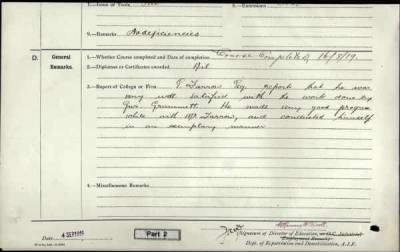 1.—Issue of Tools
8.—Extensions
9.—Remarks No deficiencies
D.
General Remarks.
1.—Whether Course completed and Date of completion Course Completed 16/8/19.
2.—Diplomas or Certificates awarded Nil
3.—Report of College or Firm P. Farrow Esq. report that he was
very well satisfied with the work done by
Gnr. Grummett. He made very good progress
while with Mr Farrow, and conducted himself
in an exemplary manner
4.—Miscellaneous Remarks
Date 4 SEP 1919
Part 2
Signature of Director of Education, or O.C. Industrial
Employment Section
Dept. of Repatriation and Demobilization, A.I.F.